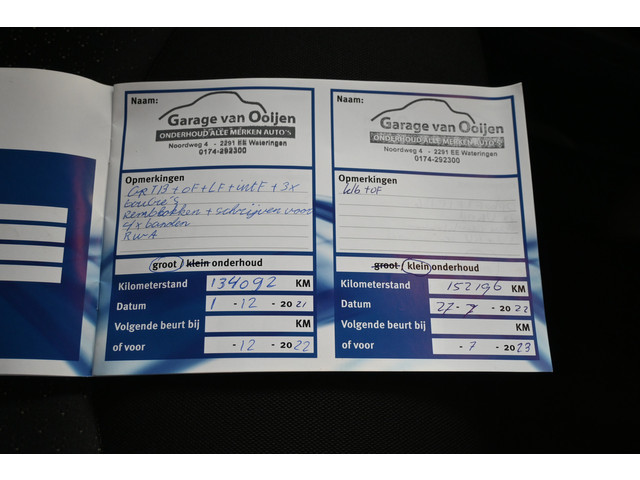 Naam:
Garage van Ooijen
ONDERHOUD ALLE MERKEN AUTO's
Noordweg 4 - 2291 EE Wateringen
0174-292300
Opmerkingen
+ oF + LF + intF + 3x
Remblokken + schrijven voor
4x banden
groot klein onderhoud
Kilometerstand 134092 KM
Datum 1 - 12 - 2021
Volgende beurt bij KM
of voor - 12 - 2022
Naam:
Garage van Ooijen
ONDERHOUD ALLE MERKEN AUTO's
Noordweg 4 - 2291 EE Wateringen
0174-292300
Opmerkingen
+ oF
groot klein onderhoud
Kilometerstand 152196 KM
Datum 27 - 7 - 2022
Volgende beurt bij KM
of voor - 7 - 2023